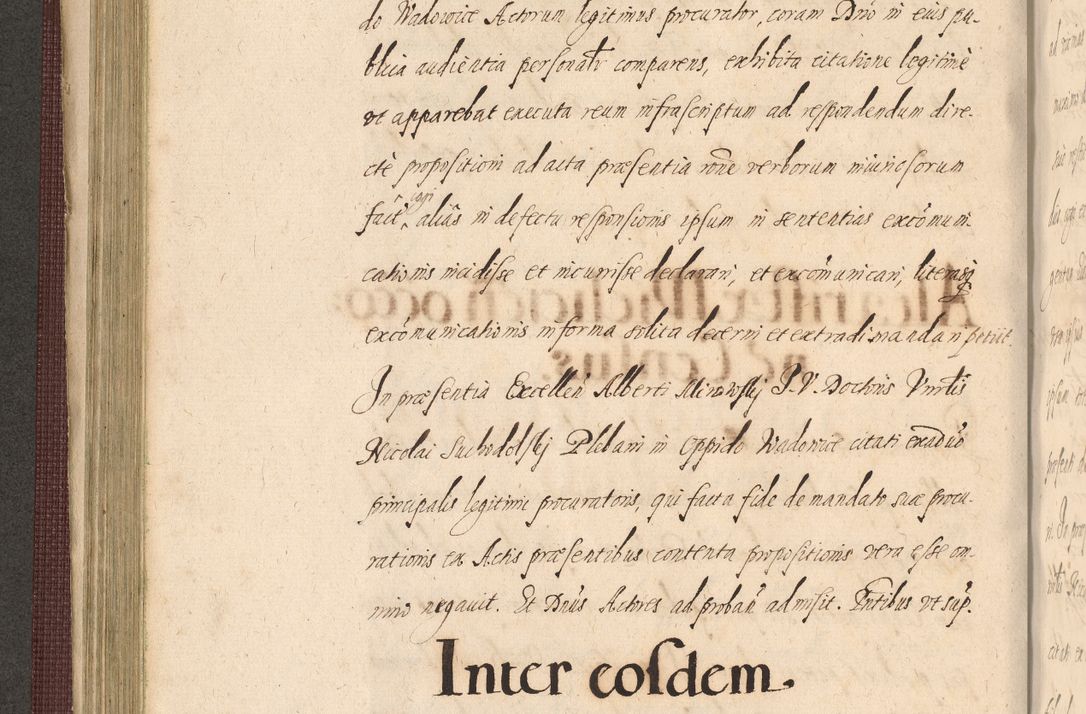 do Wadowice Actorum legitimus procurator, coram Dnō in eius pu-
blica audientia personalr comparens, exhibita citatione legitime
vt apparebat executa reum infrascriptum ad respondendum dire-
ctè propositioni ad acta præsentia rōne verborum iniuriosorum
fact alias in defectu responsionis ipsum in sententias excōmuni-
cationis incidisse et incurrisse declarari, et excōmunicari, literasq
excōmunicationis in forma solita decerni et extradi mandari petiit.
In præsentia Excellen Alberti Mirowskj J. V. Doctoris Vnrtis
Nicolai Suchodolskj Plebani in Oppido Wadowice citati
principalis legitimi procuratoris, qui facta fide de mandato suæ procu-
rationis ex Actis præsentibus contenta propositionis vera esse om-
nino negauit. Et Dnus Actores ad proban admisit. Pntibus vt sup.
Inter eosdem.